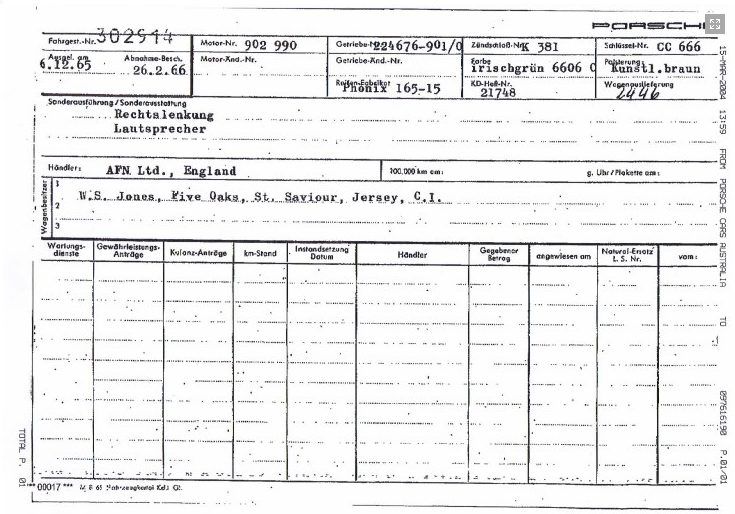 PORSCHE
Fahrgest.-Nr. 302914
Motor-Nr. 902 990
Getriebe-Nr. 224676-901/0
Zündschloß-Nr. K 381
Schlüssel-Nr. CC 666
Ausgel. am 6.12.65
Abnahme-Besch. 26.2.66
Motor-Änd.-Nr.
Getriebe-Änd.-Nr.
Farbe irischgrün 6606
Polsterung kunstl.braun
Reifen-Fabrikat Phönix 165-15
KD-Heft-Nr. 21748
Wagenauslieferung 2446
Sonderausführung / Sonderausstattung
Rechtslenkung
Lautsprecher
Händler: AFN Ltd., England
100.000 km am:
g. Uhr / Plakette am:
Wagenbesitzer
1
2 W.S. Jones, Five Oaks, St. Saviour, Jersey, C.I.
3
Wartungs-dienste
Gewährleistungs-Anträge
Kulanz-Anträge
km-Stand
Instandsetzung Datum
Händler
Gegebener Betrag
angewiesen am
Natural-Ersatz L. S. Nr.
vom:
** 00017 ***
15-MAR-2004 13:59 FROM PORSCHE CARS AUSTRALIA TO P.01/01
TOTAL P. 01